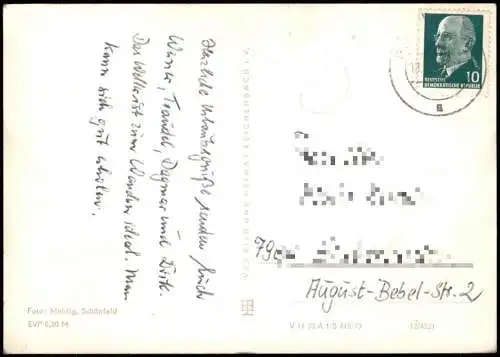 Herzliche Urlaubsgrüße senden Euch
Werner, Traudel, Dagmar und Dirk.
Das Wetter ist zum Wandern ideal. Man
kann sich gut erholen.
Foto: Mehlig, Schönfeld
EVP 0,20 M
BILD UND HEIMAT REICHENBACH I. V.
V 11 28 A 1
10
DEUTSCHE
DEMOKRATISCHE REPUBLIK
August-Bebel-Str. 2